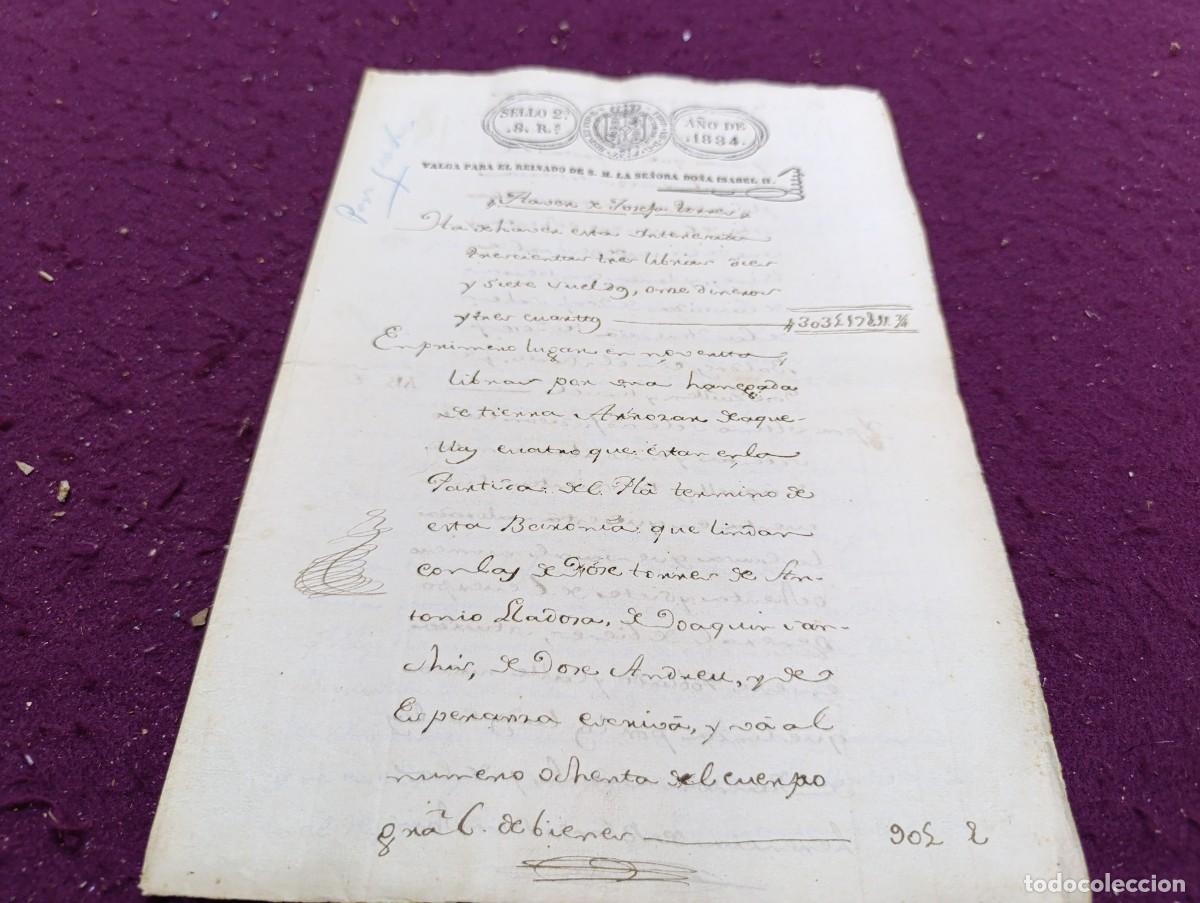 SELLO 2.º
8. R.s
AÑO DE
1834.
VALGA PARA EL REINADO DE S. M. LA SEÑORA DOÑA ISABEL II.
Haver de Josefa Torres
Ha de haver esta Interesada
trescientas tres libras dies
y siete sueldos, onse dineros
y tres cuartos 303£17s11 3/4
En primero lugar en noventa
libras por una hanegada
de tierra Arrozar de aque-
llas cuatro que estan en la
Partida del Plá termino de
esta Baronia que lindan
con las de Jose torres de An-
tonio Lladosa, de Joaquin
de Jose Andreu, y de
Esperanza escrivá, y vá al
numero ochenta del cuerpo
gral. de bienes 90£
todocoleccion